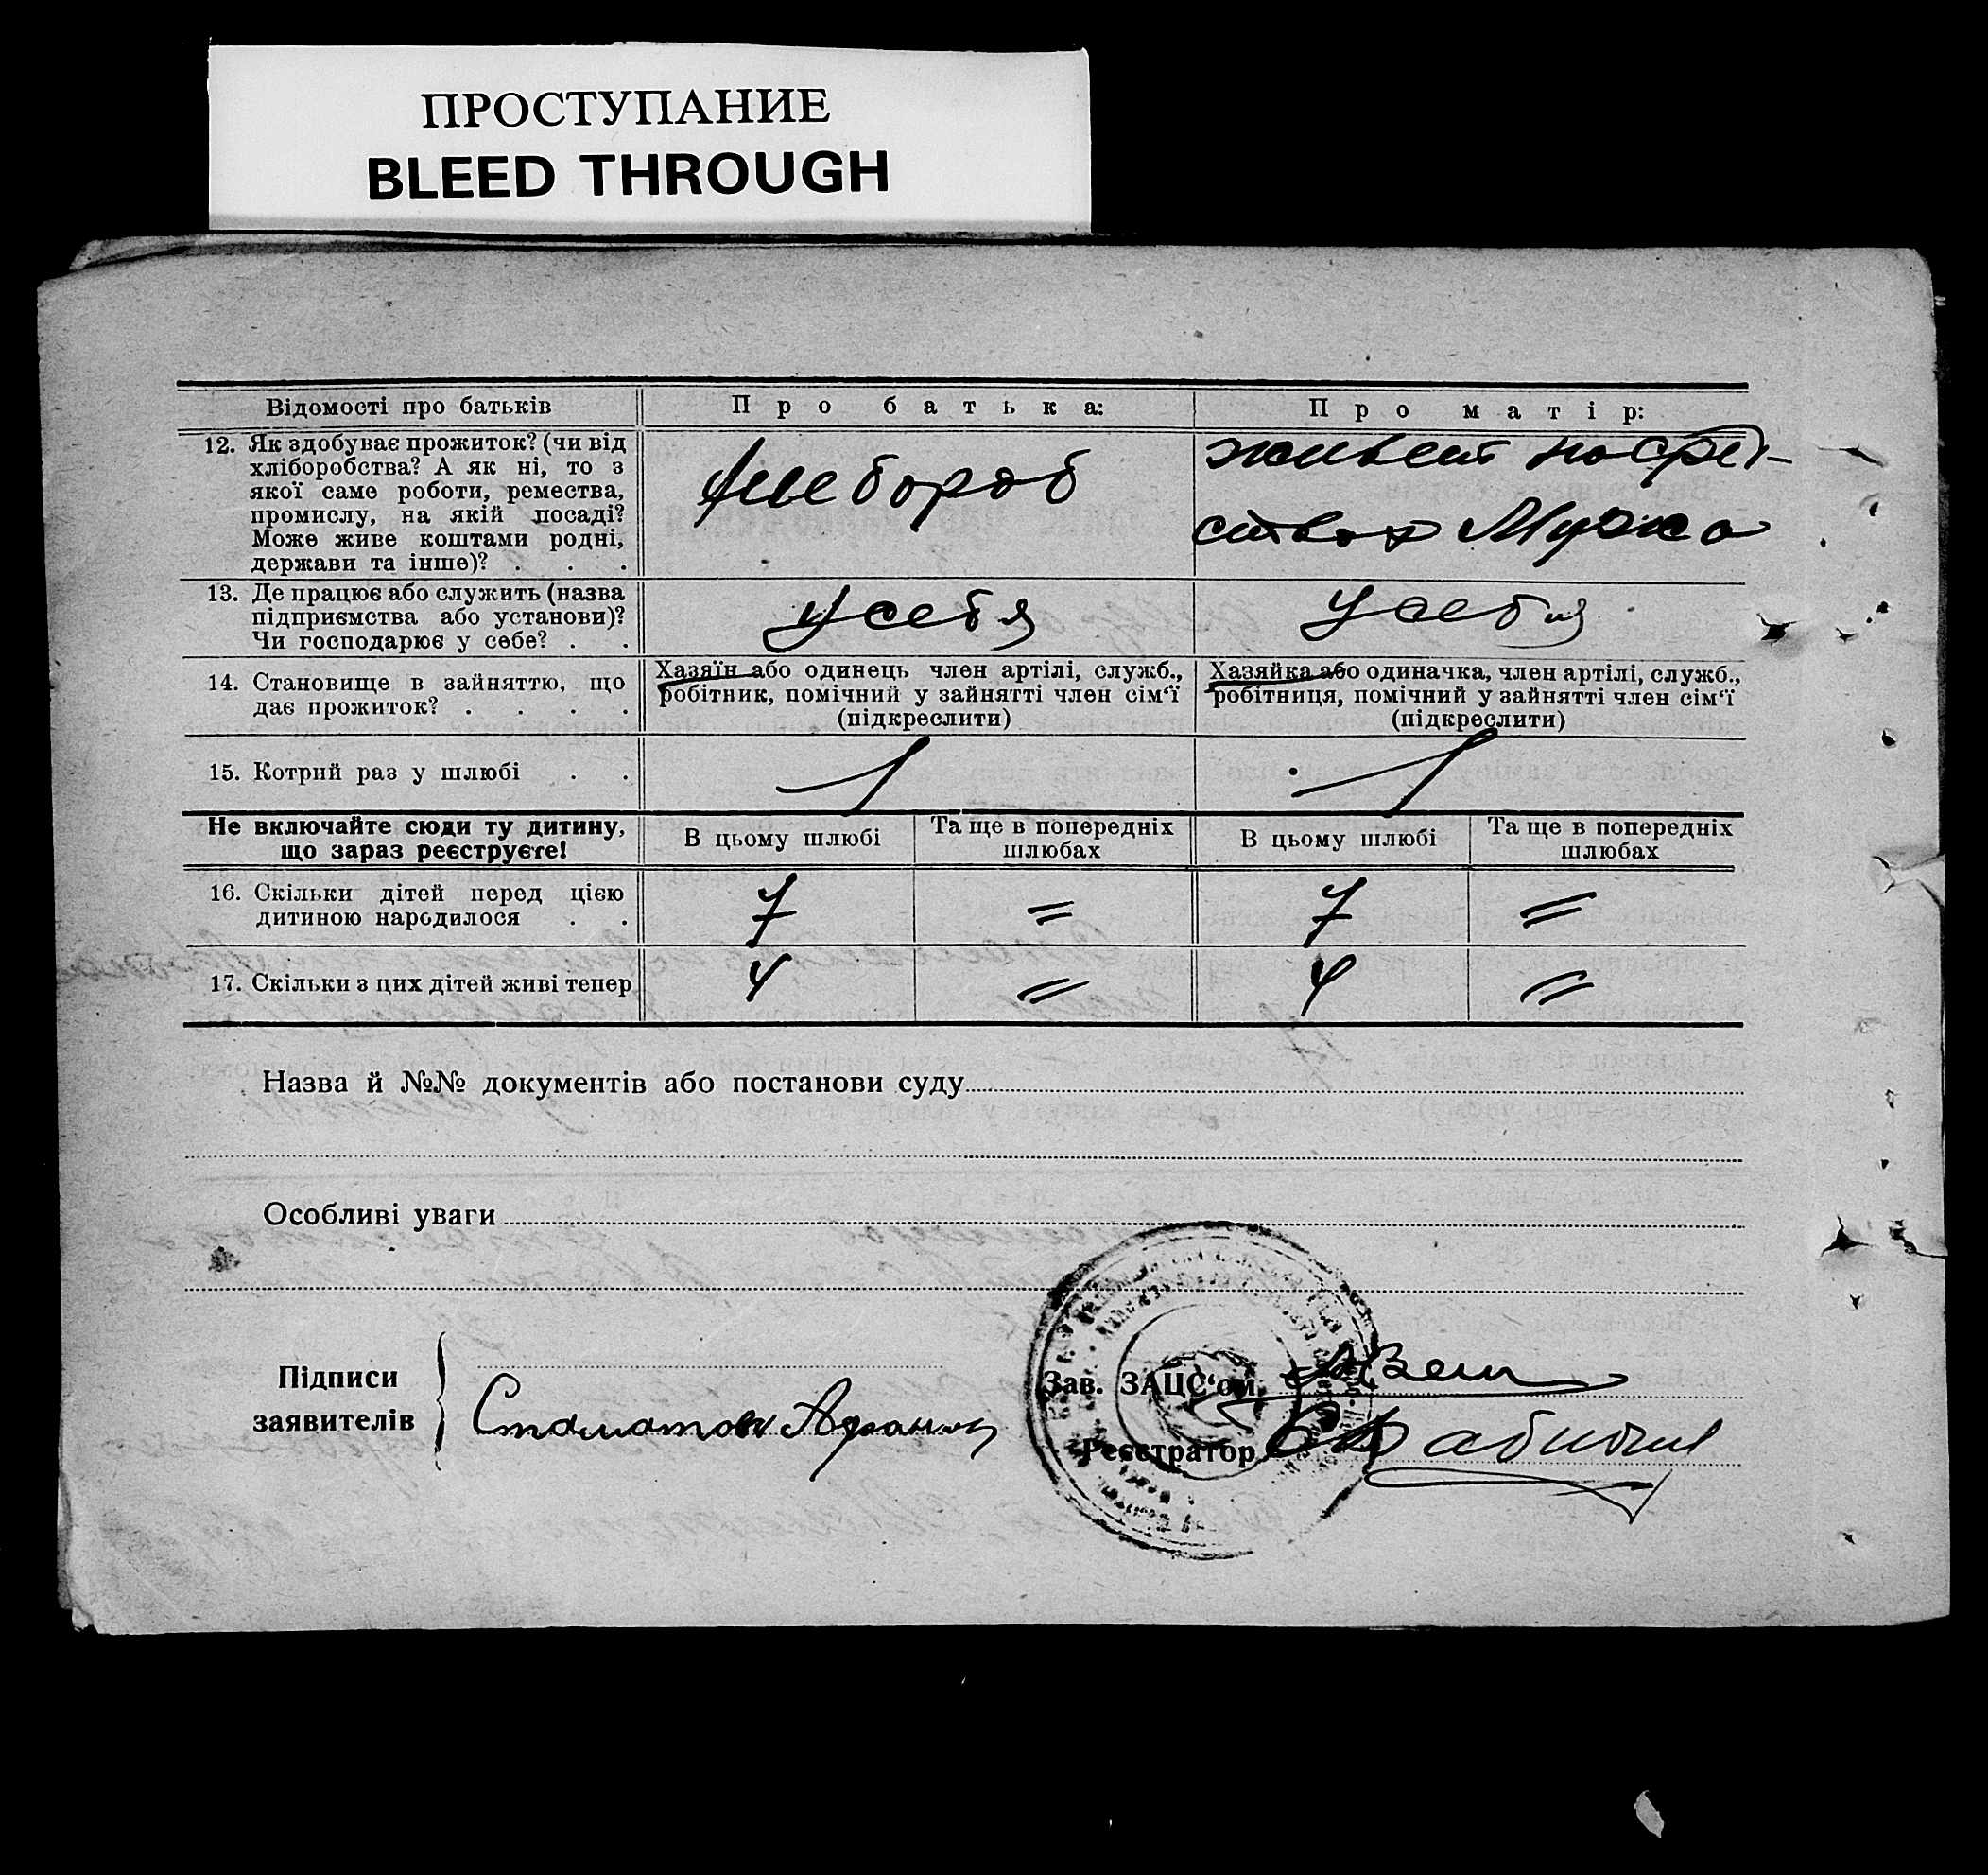 ПРОСТУПАНИЕ
BLEED THROUGH
Відомості про батьків
Про батька:
Про матір:
12. Як здобуває прожиток? (чи від
хліборобства? А як ні, то з
якої саме роботи, ремества,
промислу, на якій посаді?
Може живе коштами родні,
держави та інше)? . . .
хлебороб
живет на сред-
ствах Мужа
13. Де працює або служить (назва
підприємства або установи)?
Чи господарює у себе? . .
у себя
у себя
14. Становище в зайняттю, що
дає прожиток? . . . .
Хазяїн або одинець член артілі, служб.,
робітник, помічний у зайнятті член сім‘ї
(підкреслити)
Хазяйка або одиначка, член артілі, служб.,
робітниця, помічний у зайнятті член сім‘ї
(підкреслити)
15. Котрий раз у шлюбі . .
1
1
Не включайте сюди ту дитину,
що зараз реєструєте!
В цьому шлюбі
Та ще в попередніх
шлюбах
В цьому шлюбі
Та ще в попередніх
шлюбах
16. Скільки дітей перед цією
дитиною народилося . .
7
=
7
=
17. Скільки з цих дітей живі тепер
4
=
4
=
Назва й №№ документів або постанови суду
Особливі уваги
Підписи
заявителів
Стаматов
Зав. ЗАЦС‘ом
Реєстратор